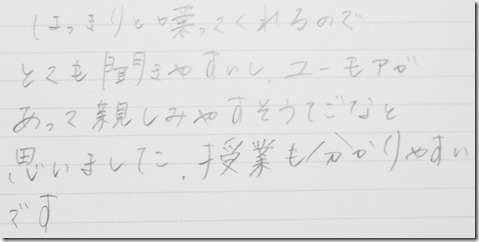 はっきりと喋ってくれるので
とても聞きやすいし、ユーモアが
あって親しみやすそうでだなと
思いました、授業も分かりやすい
です